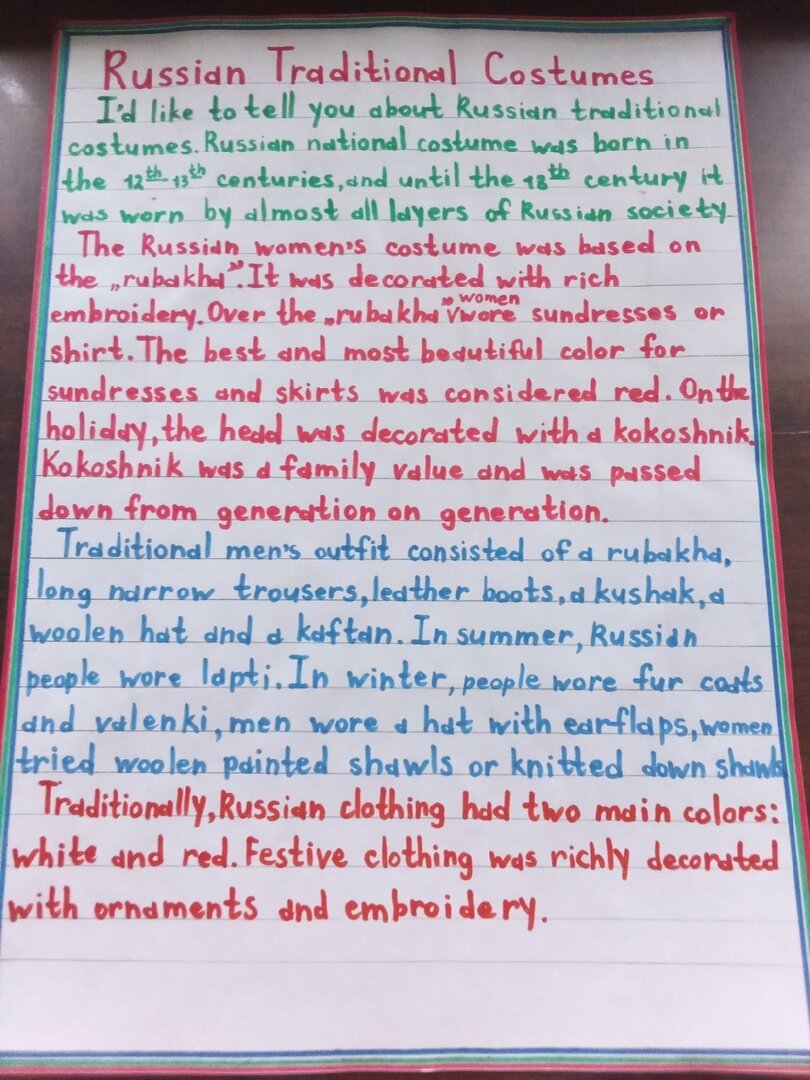 Russian Traditional Costumes
I'd like to tell you about Russian traditional
costumes. Russian national costume was born in
the 12th-13th centuries, and until the 18th century it
was worn by almost all layers of Russian society
The Russian women's costume was based on
the „rubakha”. It was decorated with rich
embroidery. Over the „rubakha” women wore sundresses or
shirt. The best and most beautiful color for
sundresses and skirts was considered red. On the
holiday, the head was decorated with a kokoshnik.
Kokoshnik was a family value and was passed
down from generation on generation.
Traditional men's outfit consisted of a rubakha,
long narrow trousers, leather boots, a kushak, a
woolen hat and a kaftan. In summer, Russian
people wore lapti. In winter, people wore fur coats
and valenki, men wore a hat with earflaps, women
tried woolen painted shawls or knitted down shawls
Traditionally, Russian clothing had two main colors:
white and red. Festive clothing was richly decorated
with ornaments and embroidery.